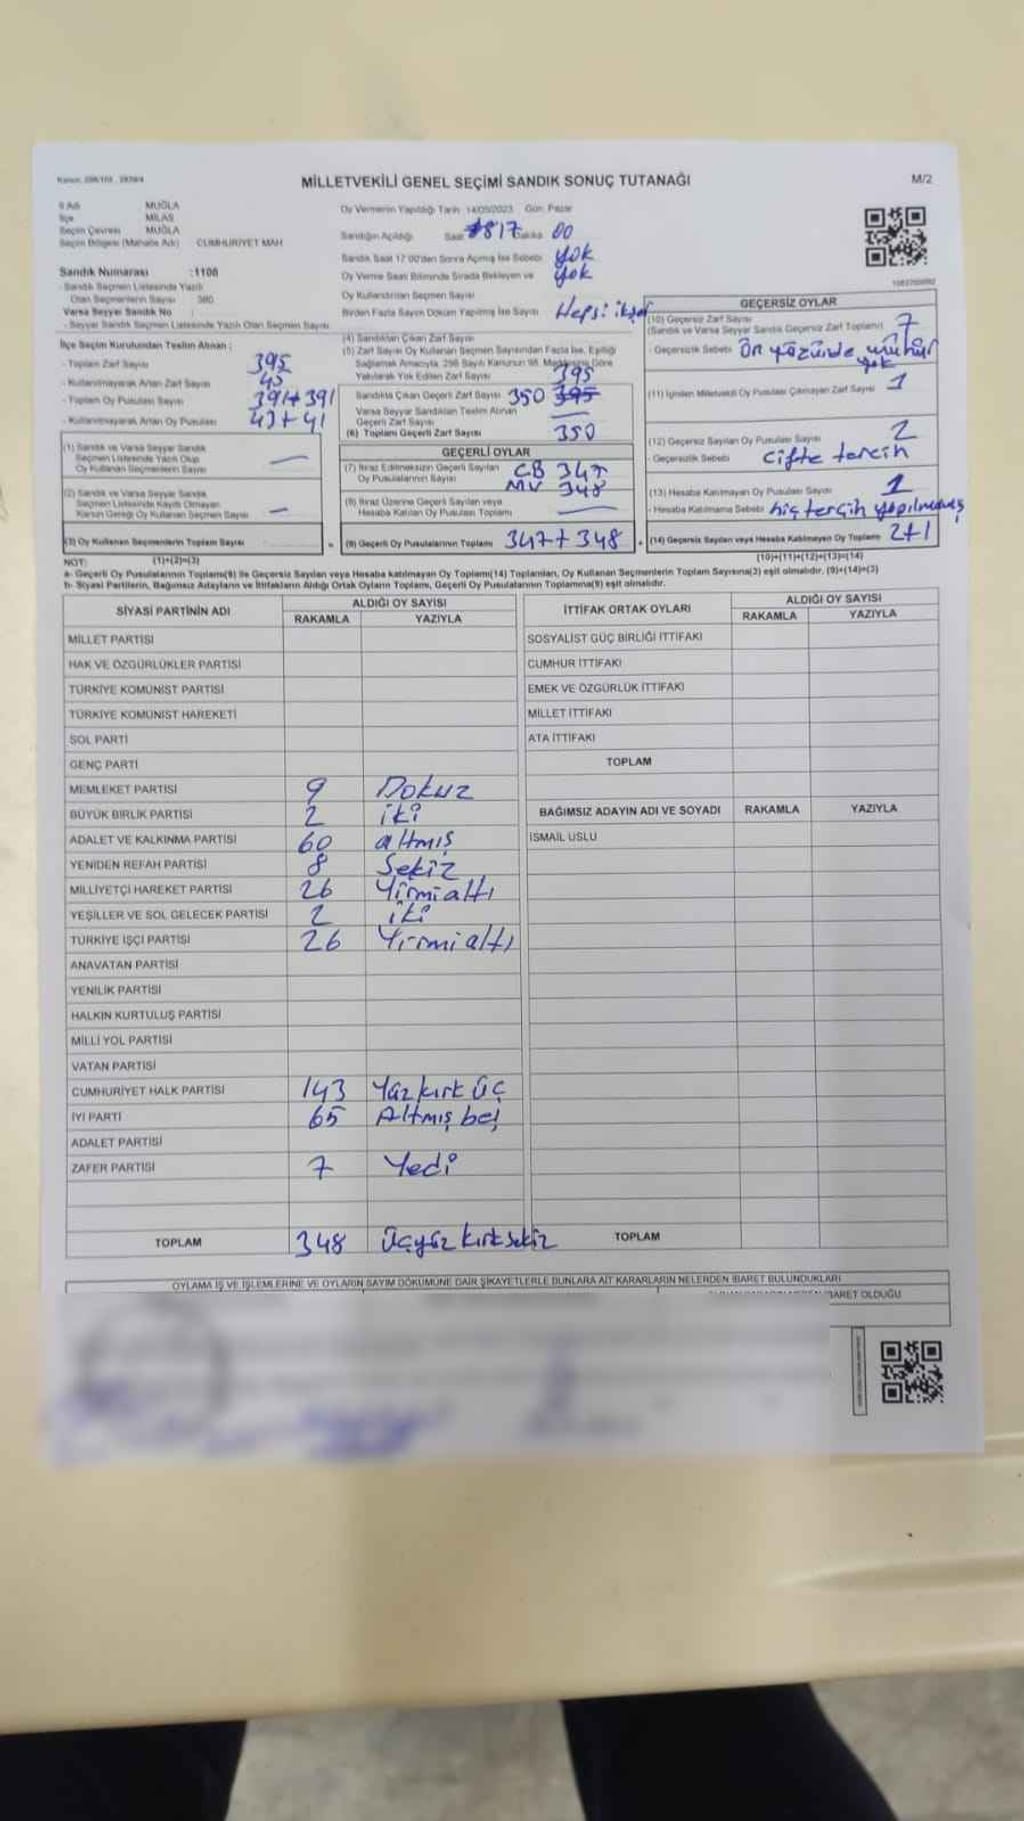 MİLLETVEKİLİ GENEL SEÇİMİ SANDIK SONUÇ TUTANAĞI
M/2
İl Adı MUĞLA
İlçe MİLAS
Seçim Çevresi MUĞLA
Seçim Bölgesi (Mahalle Adı) CUMHURİYET MAH
Sandık Numarası :1108
- Sandık Seçmen Listesinde Yazılı
Olan Seçmenlerin Sayısı 380
Varsa Seyyar Sandık No
- Seyyar Sandık Seçmen Listesinde Yazılı Olan Seçmen Sayısı
İlçe Seçim Kurulundan Teslim Alınan :
- Toplam Zarf Sayısı 395
- Kullanılmayarak Artan Zarf Sayısı 45
- Toplam Oy Pusulası Sayısı 391+391
- Kullanılmayarak Artan Oy Pusulası 41+41
(1) Sandık ve Varsa Seyyar Sandık
Seçmen Listesinde Yazılı Olup
Oy Kullanan Seçmenlerin Sayısı —
(2) Sandık ve Varsa Seyyar Sandık
Seçmen Listesinde Kaydı Olmayan
Kanun Gereği Oy Kullanan Seçmen Sayısı -
(3) Oy Kullanan Seçmenlerin Toplam Sayısı
(1)+(2)=(3)
Oy Vermenin Yapıldığı Tarih 14/05/2023 Gün: Pazar
Sandığın Açıldığı Saat 17 Dakika 00
Sandık Saat 17:00'den Sonra Açılmış İse Sebebi yok
Oy Verme Saati Bitiminde Sırada Bekleyen ve yok
Oy Kullandırılan Seçmen Sayısı
Birden Fazla Sayım Döküm Yapılmış İse Sayısı Hepsi ikişer
(4) Sandıktan Çıkan Zarf Sayısı
(5) Zarf Sayısı Oy Kullanan Seçmen Sayısından Fazla İse, Eşitliği
Sağlamak Amacıyla, 298 Sayılı Kanunun 98. Maddesine Göre
Yakılarak Yok Edilen Zarf Sayısı 395
Sandıkta Çıkan Geçerli Zarf Sayısı 350 395
Varsa Seyyar Sandıktan Teslim Alınan
Geçerli Zarf Sayısı —
(6) Toplam Geçerli Zarf Sayısı 350
GEÇERLİ OYLAR
(7) İtiraz Edilmeksizin Geçerli Sayılan CB 347
Oy Pusulalarının Sayısı MV 348
(8) İtiraz Üzerine Geçerli Sayılan veya
Hesaba Katılan Oy Toplamı —
(9) Geçerli Oy Pusulalarının Toplamı 347+348
GEÇERSİZ OYLAR
(10) Geçersiz Zarf Sayısı 7
(Sandık ve Varsa Seyyar Sandık Geçersiz Zarf Toplamı)
- Geçersizlik Sebebi Ön yüzünde mühür
yok
(11) İçinden Milletvekili Oy Pusulası Çıkmayan Zarf Sayısı 1
(12) Geçersiz Sayılan Oy Pusulası Sayısı 2
- Geçersizlik Sebebi Çifte tercih
(13) Hesaba Katılmayan Oy Pusulası Sayısı 1
- Hesaba Katılmama Sebebi hiç tercih yapılmamış
(14) Geçersiz Sayılan veya Hesaba Katılmayan Oy Toplamı 2+1
(10)+(11)+(12)+(13)=(14)
NOT:
a- Geçerli Oy Pusulalarının Toplamı(9) ile Geçersiz Sayılan veya Hesaba Katılmayan Oy Toplamı(14) Toplamları, Oy Kullanan Seçmenlerin Toplam Sayısına(3) eşit olmalıdır. (9)+(14)=(3)
b- Siyasi Partilerin, Bağımsız Adayların ve İttifakların Aldığı Ortak Oyların Toplamı, Geçerli Oy Pusulalarının Toplamına(9) eşit olmalıdır.
SİYASİ PARTİNİN ADI ALDIĞI OY SAYISI
RAKAMLA YAZIYLA
MİLLET PARTİSİ
HAK VE ÖZGÜRLÜKLER PARTİSİ
TÜRKİYE KOMÜNİST PARTİSİ
TÜRKİYE KOMÜNİST HAREKETİ
SOL PARTİ
GENÇ PARTİ
MEMLEKET PARTİSİ 9 Dokuz
BÜYÜK BİRLİK PARTİSİ 2 iki
ADALET VE KALKINMA PARTİSİ 60 altmış
YENİDEN REFAH PARTİSİ 8 Sekiz
MİLLİYETÇİ HAREKET PARTİSİ 26 Yirmialtı
YEŞİLLER VE SOL GELECEK PARTİSİ 2 iki
TÜRKİYE İŞÇİ PARTİSİ 26 Yirmialtı
ANAVATAN PARTİSİ
YENİLİK PARTİSİ
HALKIN KURTULUŞ PARTİSİ
MİLLİ YOL PARTİSİ
VATAN PARTİSİ
CUMHURİYET HALK PARTİSİ 143 Yüzkırk üç
İYİ PARTİ 65 Altmış beş
ADALET PARTİSİ
ZAFER PARTİSİ 7 Yedi
TOPLAM 348 Üçyüz kırksekiz
İTTİFAK ORTAK OYLARI ALDIĞI OY SAYISI
RAKAMLA YAZIYLA
SOSYALİST GÜÇ BİRLİĞİ İTTİFAKI
CUMHUR İTTİFAKI
EMEK VE ÖZGÜRLÜK İTTİFAKI
MİLLET İTTİFAKI
ATA İTTİFAKI
TOPLAM
BAĞIMSIZ ADAYIN ADI VE SOYADI RAKAMLA YAZIYLA
İSMAİL USLU
TOPLAM
OYLAMA İŞ VE İŞLEMLERİNE VE OYLARIN SAYIM DÖKÜMÜNE DAİR ŞİKAYETLERLE BUNLARA AİT KARARLARIN NELERDEN İBARET BULUNDUKLARI
İBARET OLDUĞU